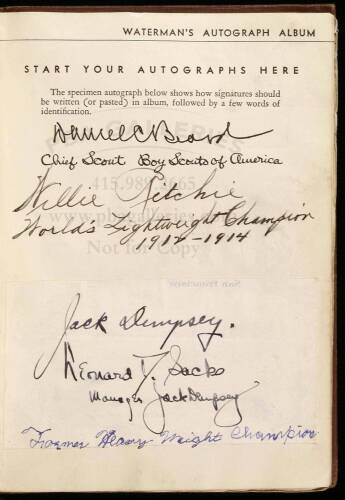 WATERMAN'S AUTOGRAPH ALBUM
START YOUR AUTOGRAPHS HERE
The specimen autograph below shows how signatures should
be written (or pasted) in album, followed by a few words of
identification.
Daniel C Beard
Chief Scout Boy Scouts of America
Willie Ritchie
World's Lightweight Champion
1912-1914
San Francisco
Jack Dempsey.
Leonard J. Sacks
Manager Jack Dempsey
Froamer Heavy Weight Champion